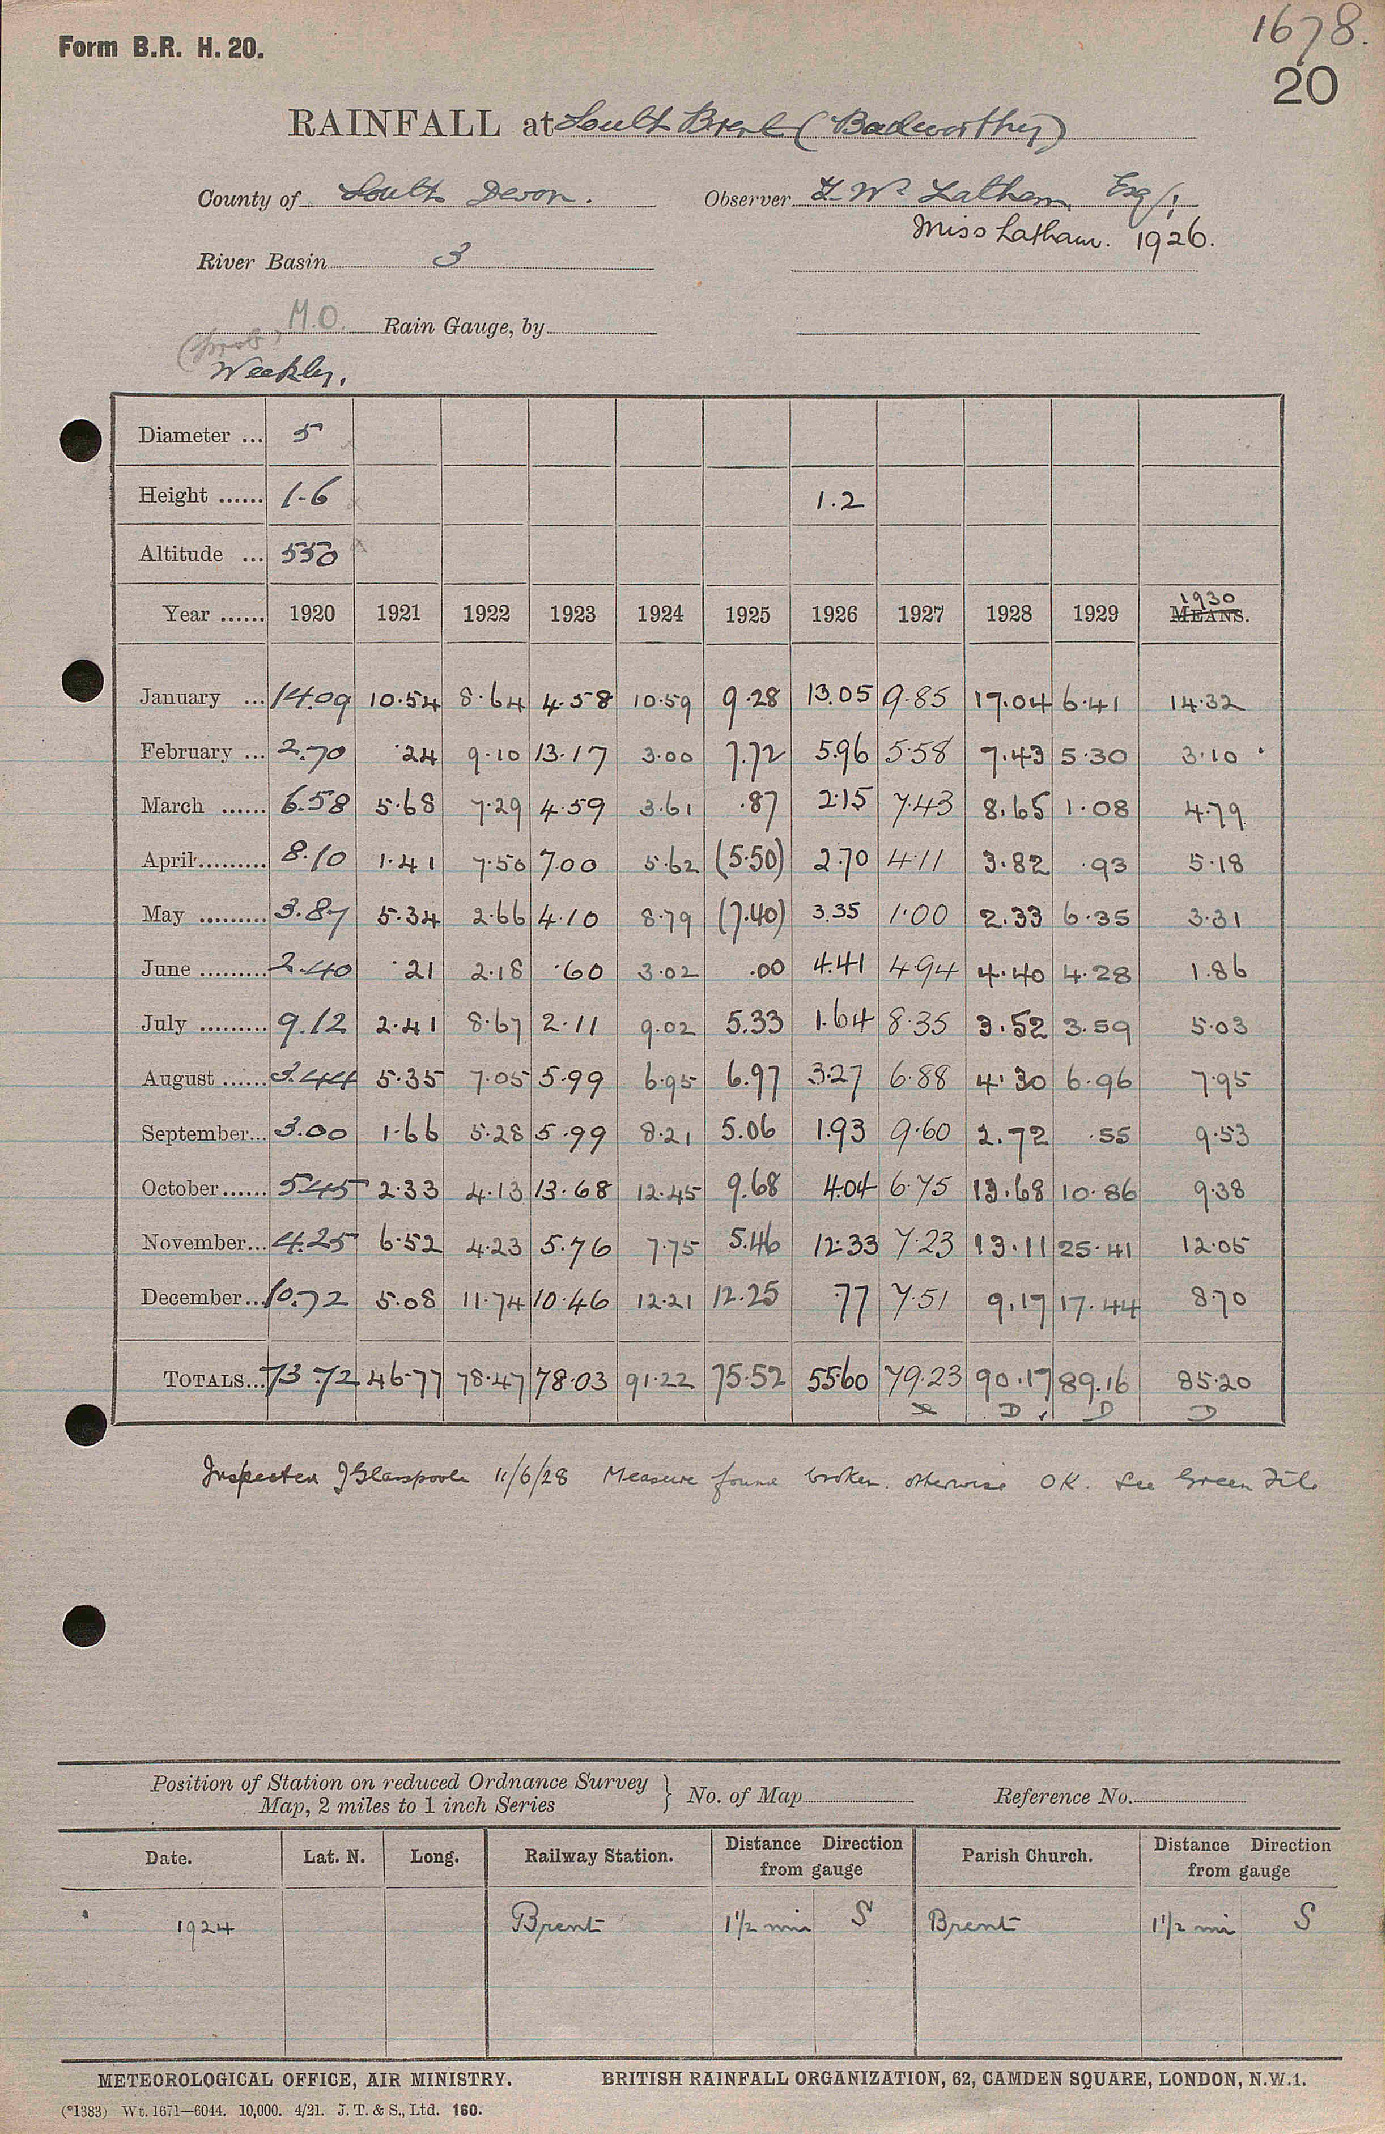 1678.
Form B.R. H. 20.
20
RAINFALL at South Brent (Badworthy)
County of South Devon. Observer F. Wm Latham Esq;
Miss Latham. 1926.
River Basin 3
M.O. Rain Gauge, by
Weekly.
Diameter ... 5
Height ...... 1-6 1.2
Altitude ... 550
Year ...... 1920 1921 1922 1923 1924 1925 1926 1927 1928 1929 1930 MEANS.
January ... 14.09 10.54 8.64 4.58 10.59 9.28 13.05 9.85 17.04 6.41 14.32
February ... 2.70 .24 9.10 13.17 3.00 7.72 5.96 5.58 7.43 5.30 3.10
March ...... 6.58 5.68 7.29 4.59 3.61 .87 2.15 7.43 8.65 1.08 4.79
April ......... 8.10 1.41 7.50 7.00 5.62 (5.50) 2.70 4.11 3.82 .93 5.18
May ......... 3.87 5.34 2.66 4.10 8.79 (7.40) 3.35 1.00 2.33 6.35 3.31
June ......... 2.40 .21 2.18 .60 3.02 .00 4.41 4.94 4.40 4.28 1.86
July ......... 9.12 2.41 8.67 2.11 9.02 5.33 1.64 8.35 3.52 3.59 5.03
August ...... 3.44 5.35 7.05 5.99 6.95 6.97 3.27 6.88 4.30 6.96 7.95
September... 3.00 1.66 5.28 5.99 8.21 5.06 1.93 9.60 2.72 .55 9.53
October ...... 5.45 2.33 4.13 13.68 12.45 9.68 4.04 6.75 13.68 10.86 9.38
November... 4.25 6.52 4.23 5.76 7.75 5.46 12.33 7.23 13.11 25.41 12.05
December... 10.72 5.08 11.74 10.46 12.21 12.25 .77 7.51 9.17 17.44 8.70
TOTALS... 73.72 46.77 78.47 78.03 91.22 75.52 55.60 79.23 90.17 89.16 85.20
D D D
Inspected J Glasspoole 11/6/28 Measure found broken. otherwise OK. See Green File
Position of Station on reduced Ordnance Survey
Map, 2 miles to 1 inch Series } No. of Map Reference No.
Date. Lat. N. Long. Railway Station. Distance Direction from gauge Parish Church. Distance Direction from gauge
1924 Brent 1½ mi S Brent 1½ mi S
METEOROLOGICAL OFFICE, AIR MINISTRY. BRITISH RAINFALL ORGANIZATION, 62, CAMDEN SQUARE, LONDON, N.W.1.
(*1383) Wt. 1671—6044. 10,000. 4/21. J. T. & S., Ltd. 160.